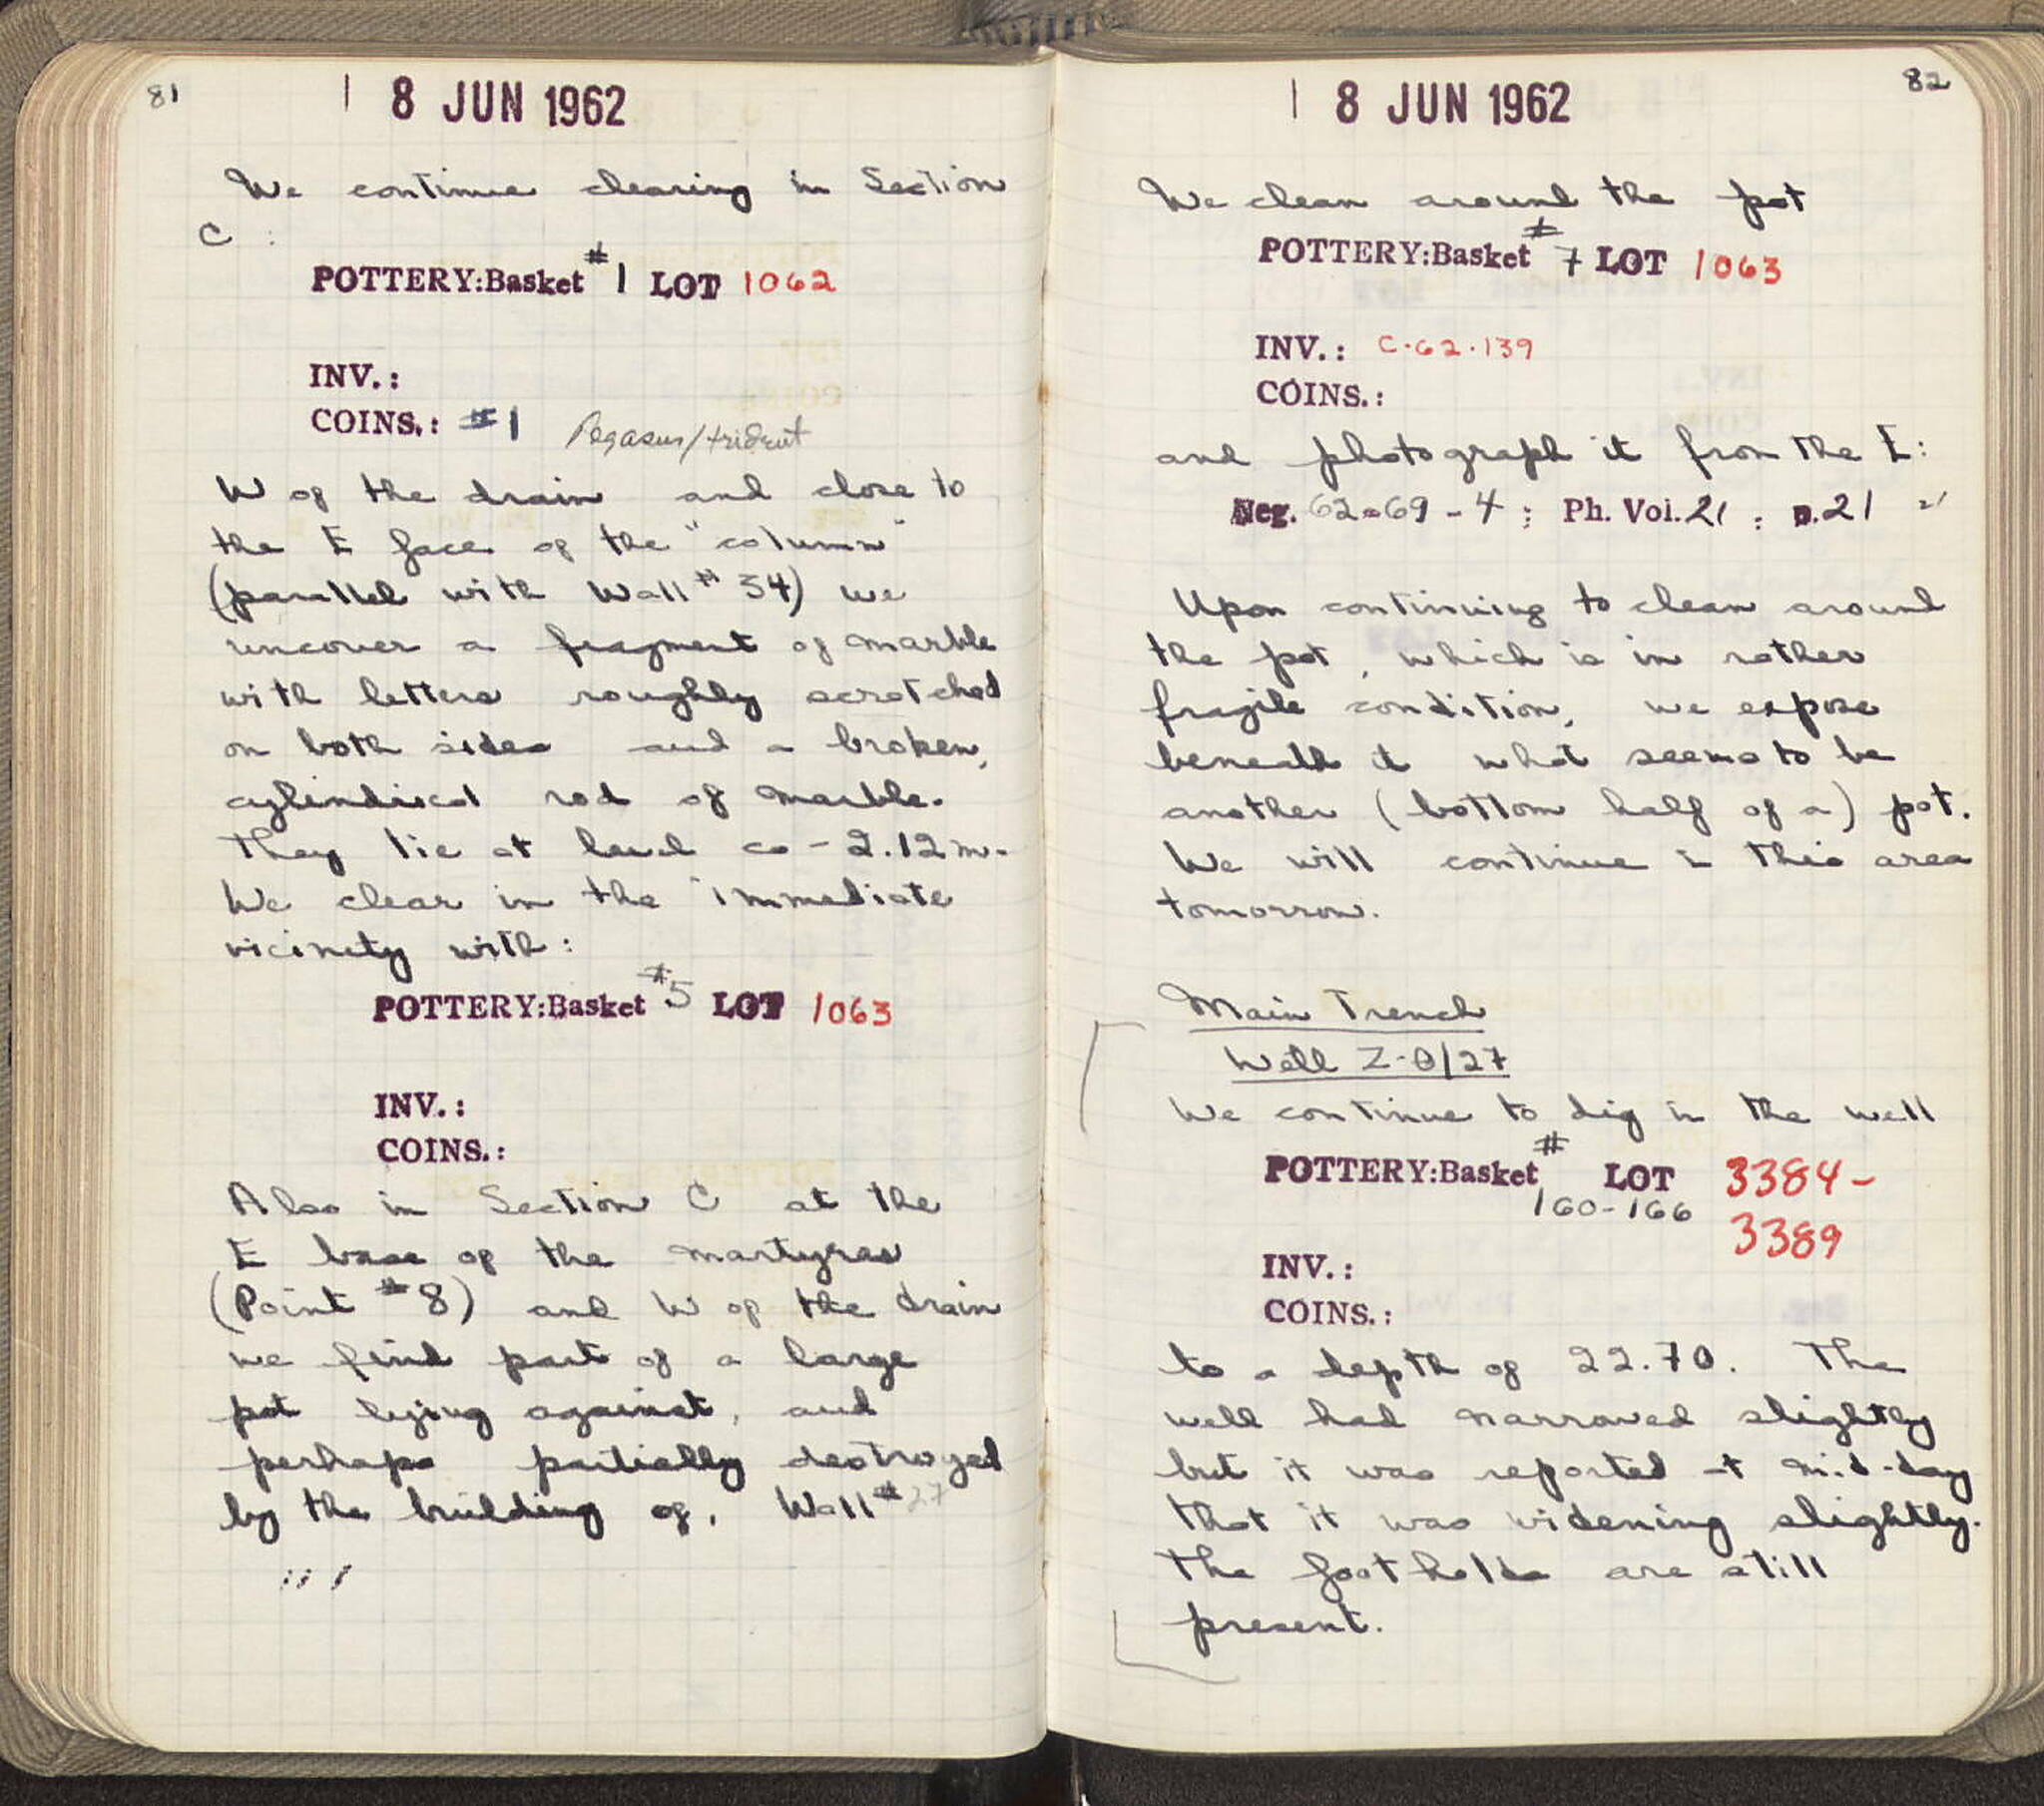 81
18 JUN 1962
We continue clearing in Section
C :
POTTERY:Basket #1 LOT 1062
INV.:
COINS.: #1 Pegasus/trident
W of the drain and close to
the E face of the "column"
(parallel with Wall #34) we
uncover a fragment of marble
with letters roughly scratched
on both sides and a broken,
cylindical rod of marble.
They lie at level ca -2.12m.
We clear in the immediate
vicinety with:
POTTERY:Basket #5 LOT 1063
INV.:
COINS.:
Also in Section C at the
E base of the martyres
(Point #8) and W of the drain
we find part of a large
pot lying against, and
perhaps partially destroyed
by the building of, Wall #27
82
18 JUN 1962
We clean around the pot
POTTERY:Basket #7 LOT 1063
INV.: C·62·139
COINS.:
and photograph it from the E:
Neg. 62-69-4; Ph. Vol. 21 : p. 21
Upon continuing to clean around
the pot, which is in rather
fragile condition, we expose
beneath it what seems to be
another (bottom half of a) pot.
We will continue in this area
tomorrow.
Main Trench
Well Z-θ/27
We continue to dig in the well
POTTERY:Basket # 160-166 LOT 3384-
3389
INV.:
COINS.:
to a depth of 22.70. The
well had narrowed slightly
but it was reported at mid-day
that it was widening slightly.
The footholds are still
present.